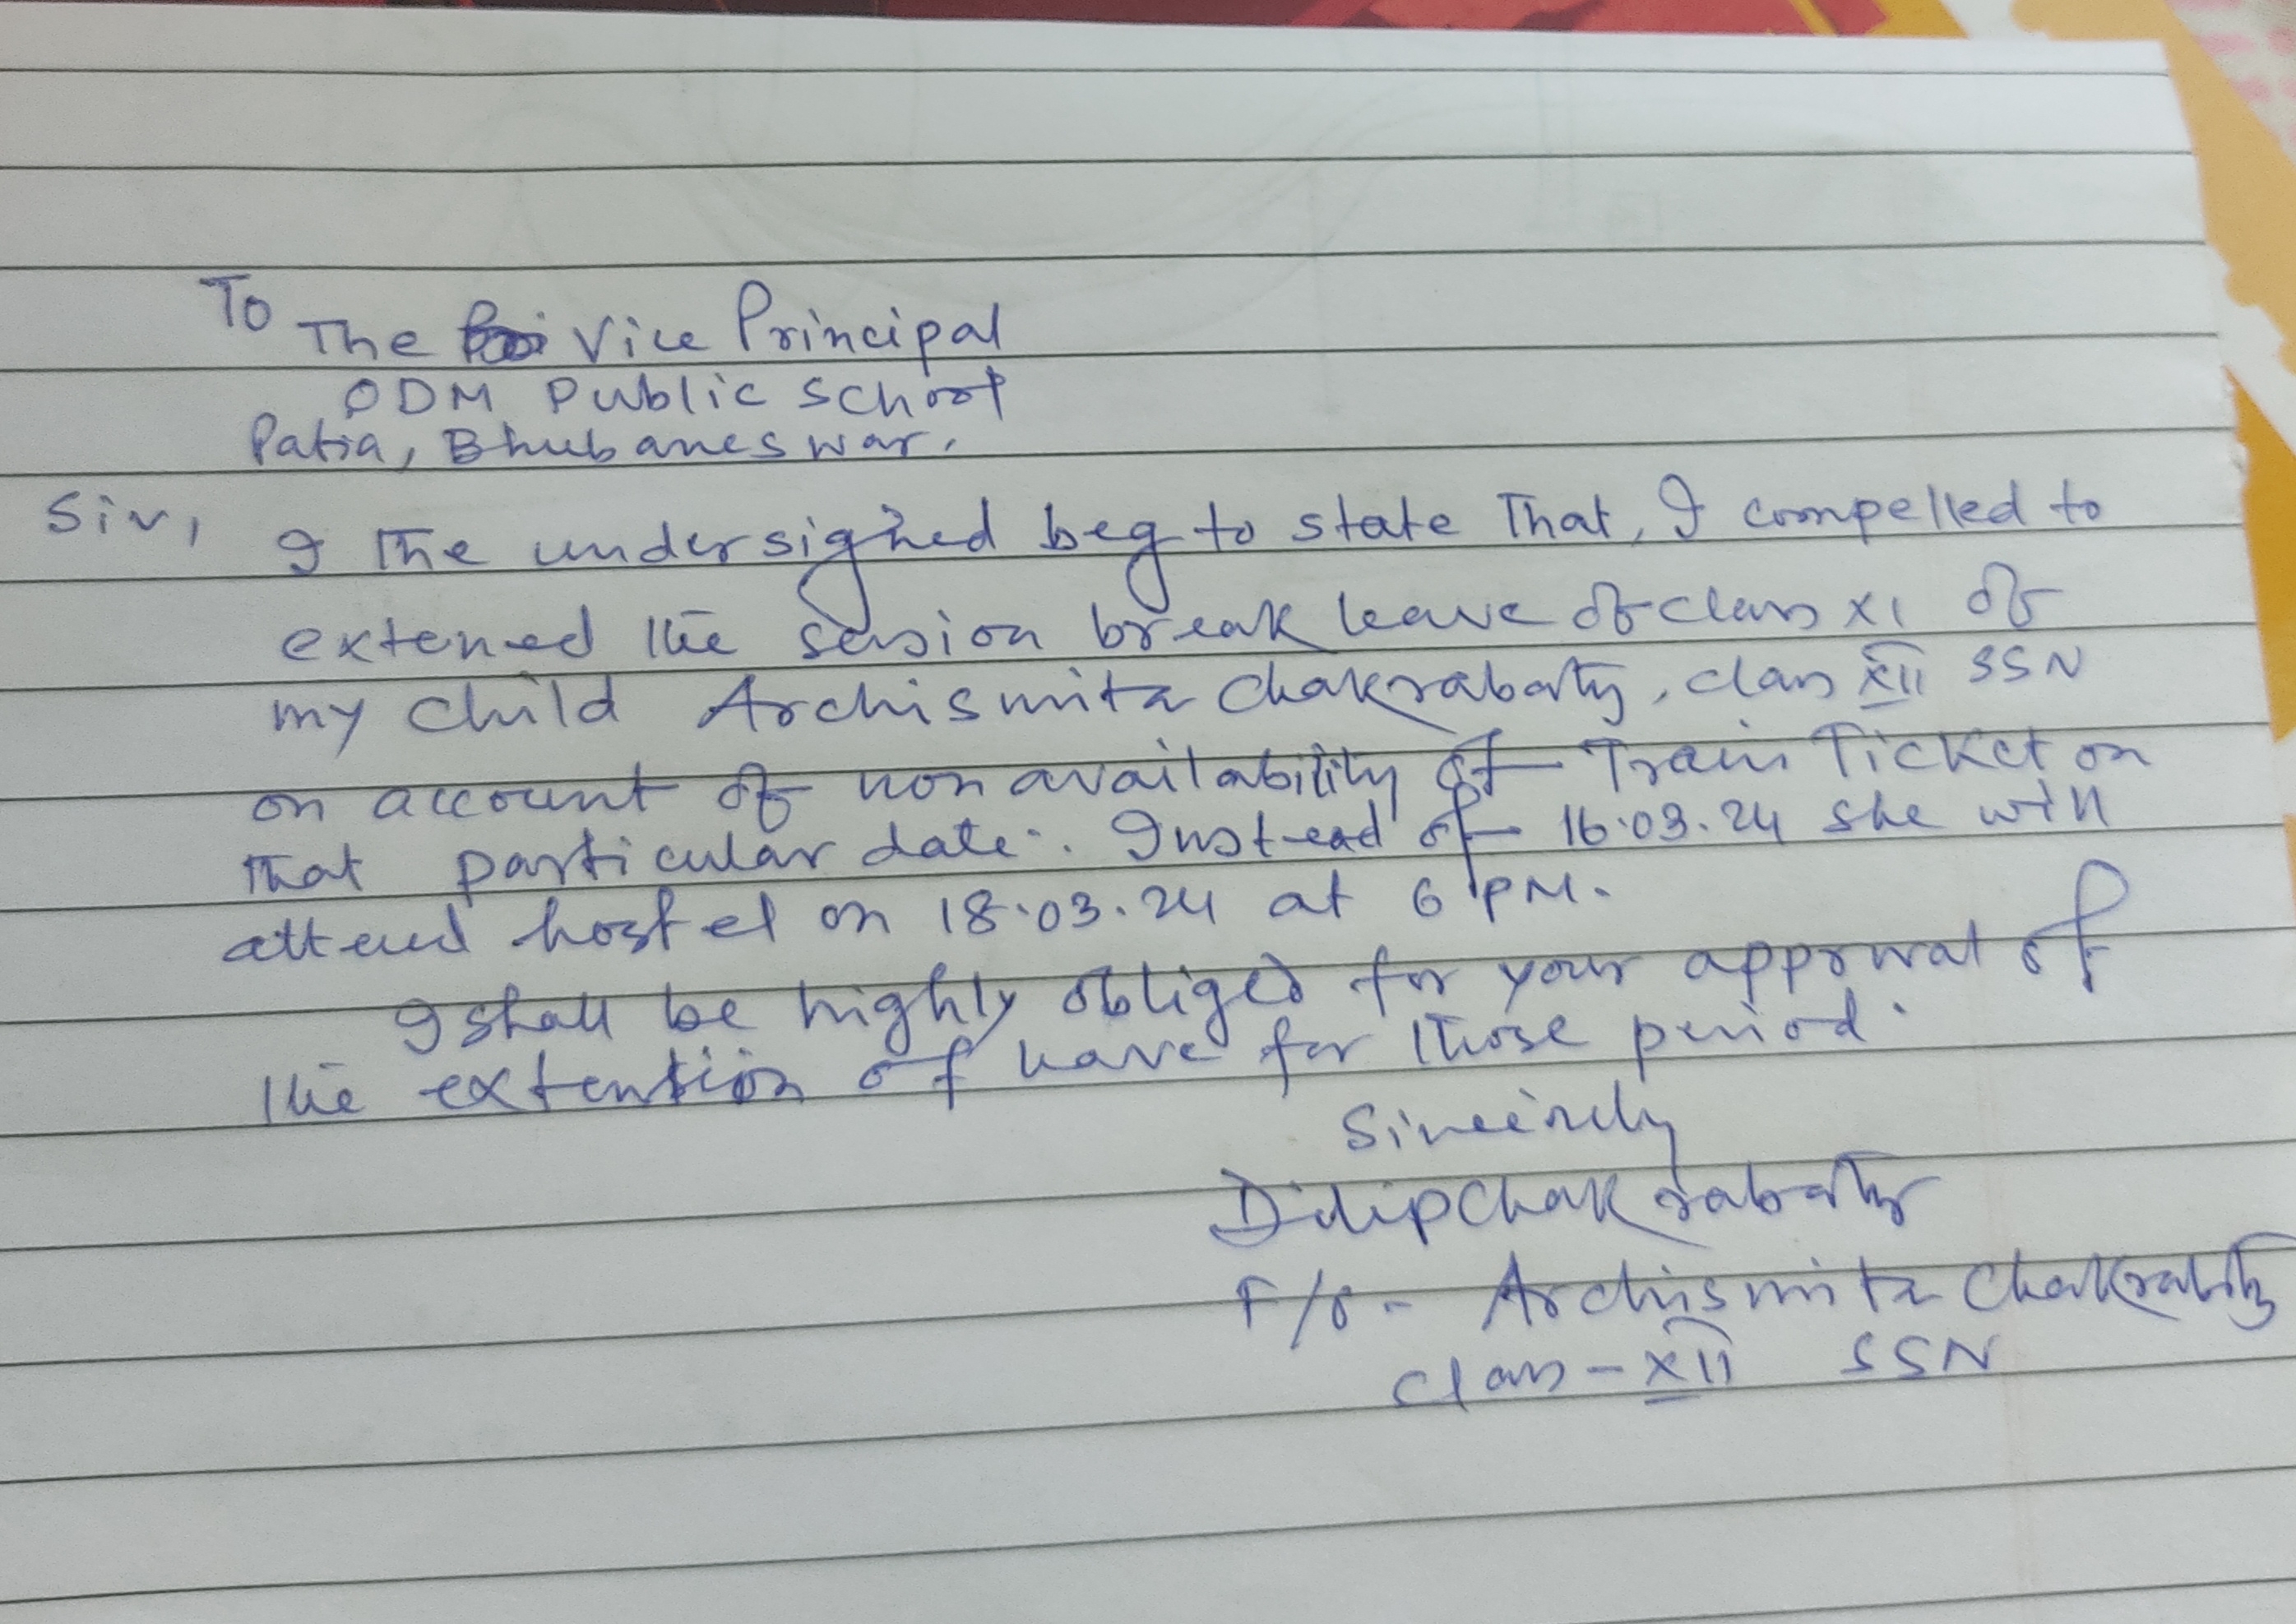 To
The Vice Principal
ODM Public School
Patia, Bhubaneswar.
Sir,
I the undersigned beg to state That, I compelled to
extened the session break leave of class XI of
my child Archismita Chakraborty, class XII SSN
on account of non availability of Train Ticket on
that particular date. Instead of 16.03.24 she will
attend hostel on 18.03.24 at 6 PM.
I shall be highly obliged for your approval of
the extention of leave for those period.
Sincerely
Dilip Chakraborty
F/o - Archismita Chakraborty
Class - XII SSN